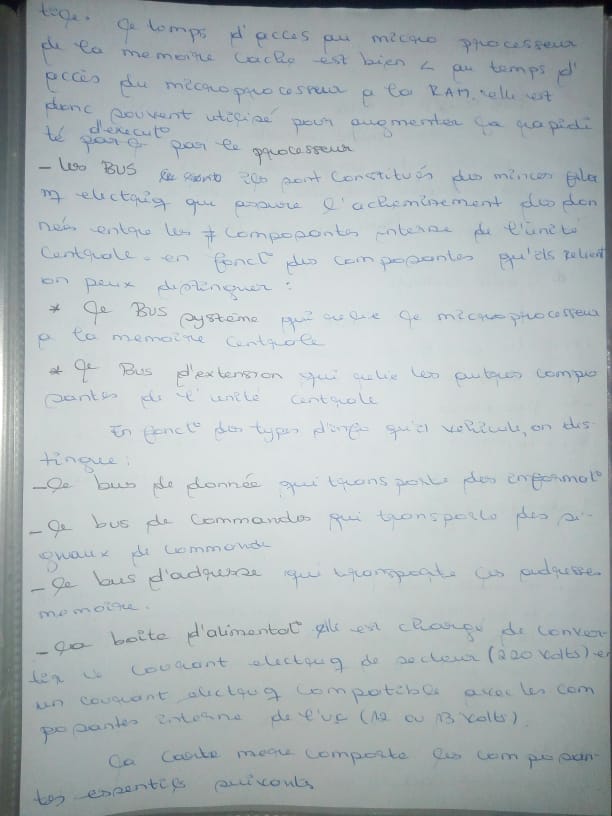 tige. Le temps d'accès au micro processeur
de la memoire cache est bien < au temps d'
accès du microprocesseur a la RAM. elle est
donc souvent utilisé pour augmenter la rapidi
té d'execut° par le processeur
- les BUS ils sont constitués des minces
electriq qui assure l'acheminement des don
nées entre les ≠ composantes interne de l'unité
Centrale. en fonct° des composantes qu'ils relient
on peux distinguer :
* Le Bus système qui relie le microprocesseur
a la memoire Centrale
* Le Bus d'extension qui relie les autres compo
santes de l'unité centrale
En fonct° des types d'info qu'il vehicule, on dis-
tingue :
- Le bus de donnée qui transporte des informat°
- Le bus de Commandes qui transporte des si-
gnaux de commande
- Le bus d'adresse qui transporte les adresses
memoire.
- La boîte d'alimentat° elle est chargé de conver-
tir le courant electriq de secteur (220 volts) en
un courant electriq compatible avec les com
posantes interne de l'uc (12 ou 13 volts).
La Carte mere comporte les composan-
tes essentiels suivants